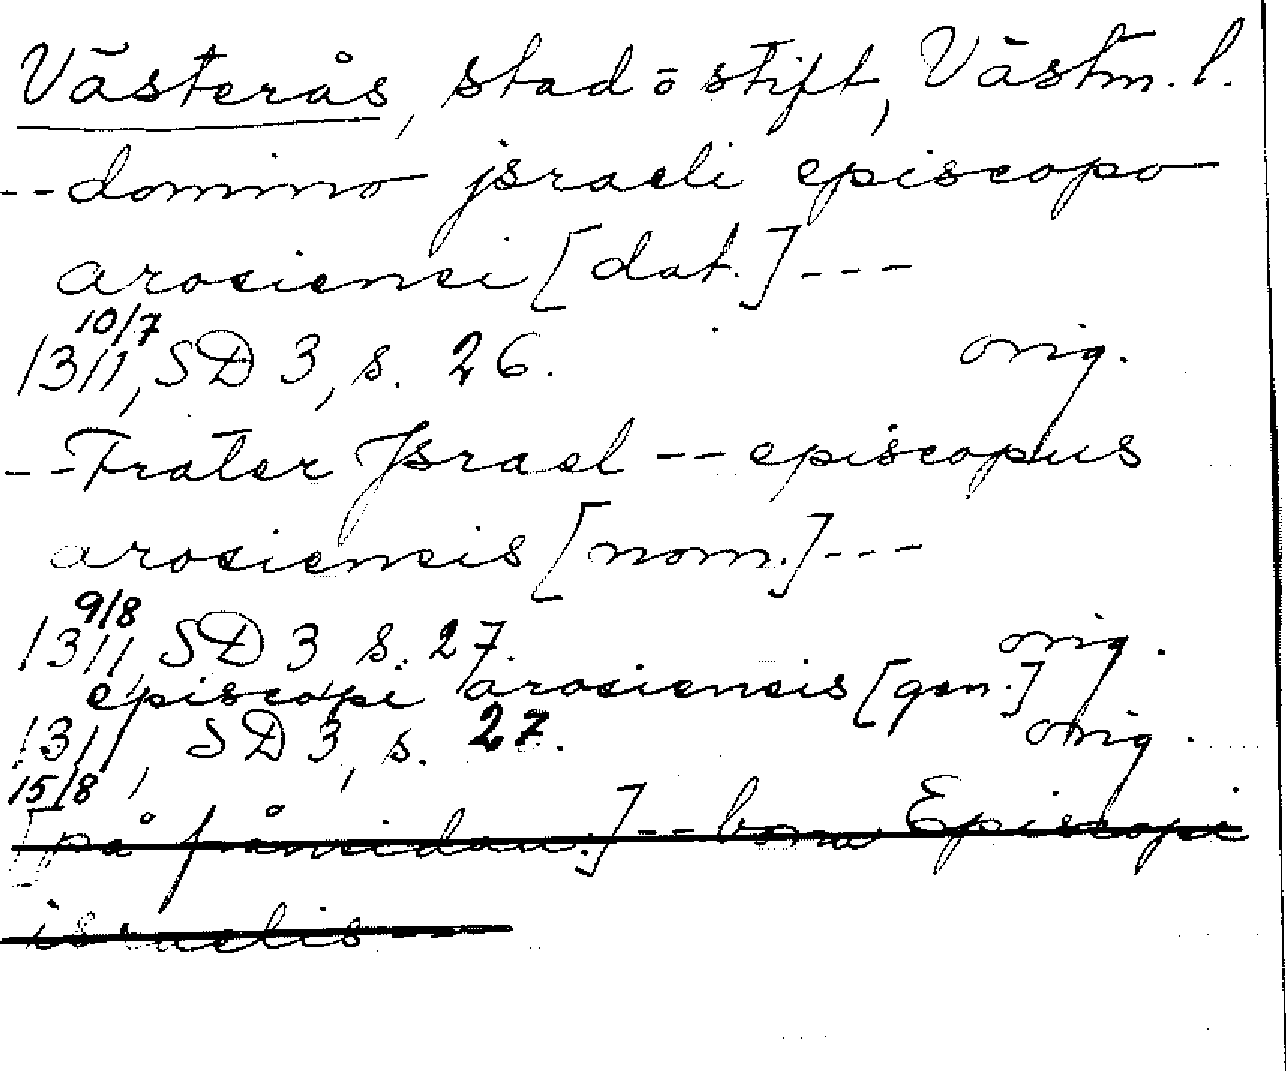 Västerås, stad o stift, Västm. l.
--domino jsraeli episcopo
arosiensi [dat.]---
10/7
1311, SD 3, s. 26. orig.
--Frater Jsrael -- episcopus
arosiensis [nom.]---
9/8
1311, SD 3 s. 27. orig.
episcopi arosiensis [gen.]
1311, SD 3, s. 27. orig.
15/8
[på frånsidan.]--bona Episcopi
israelis